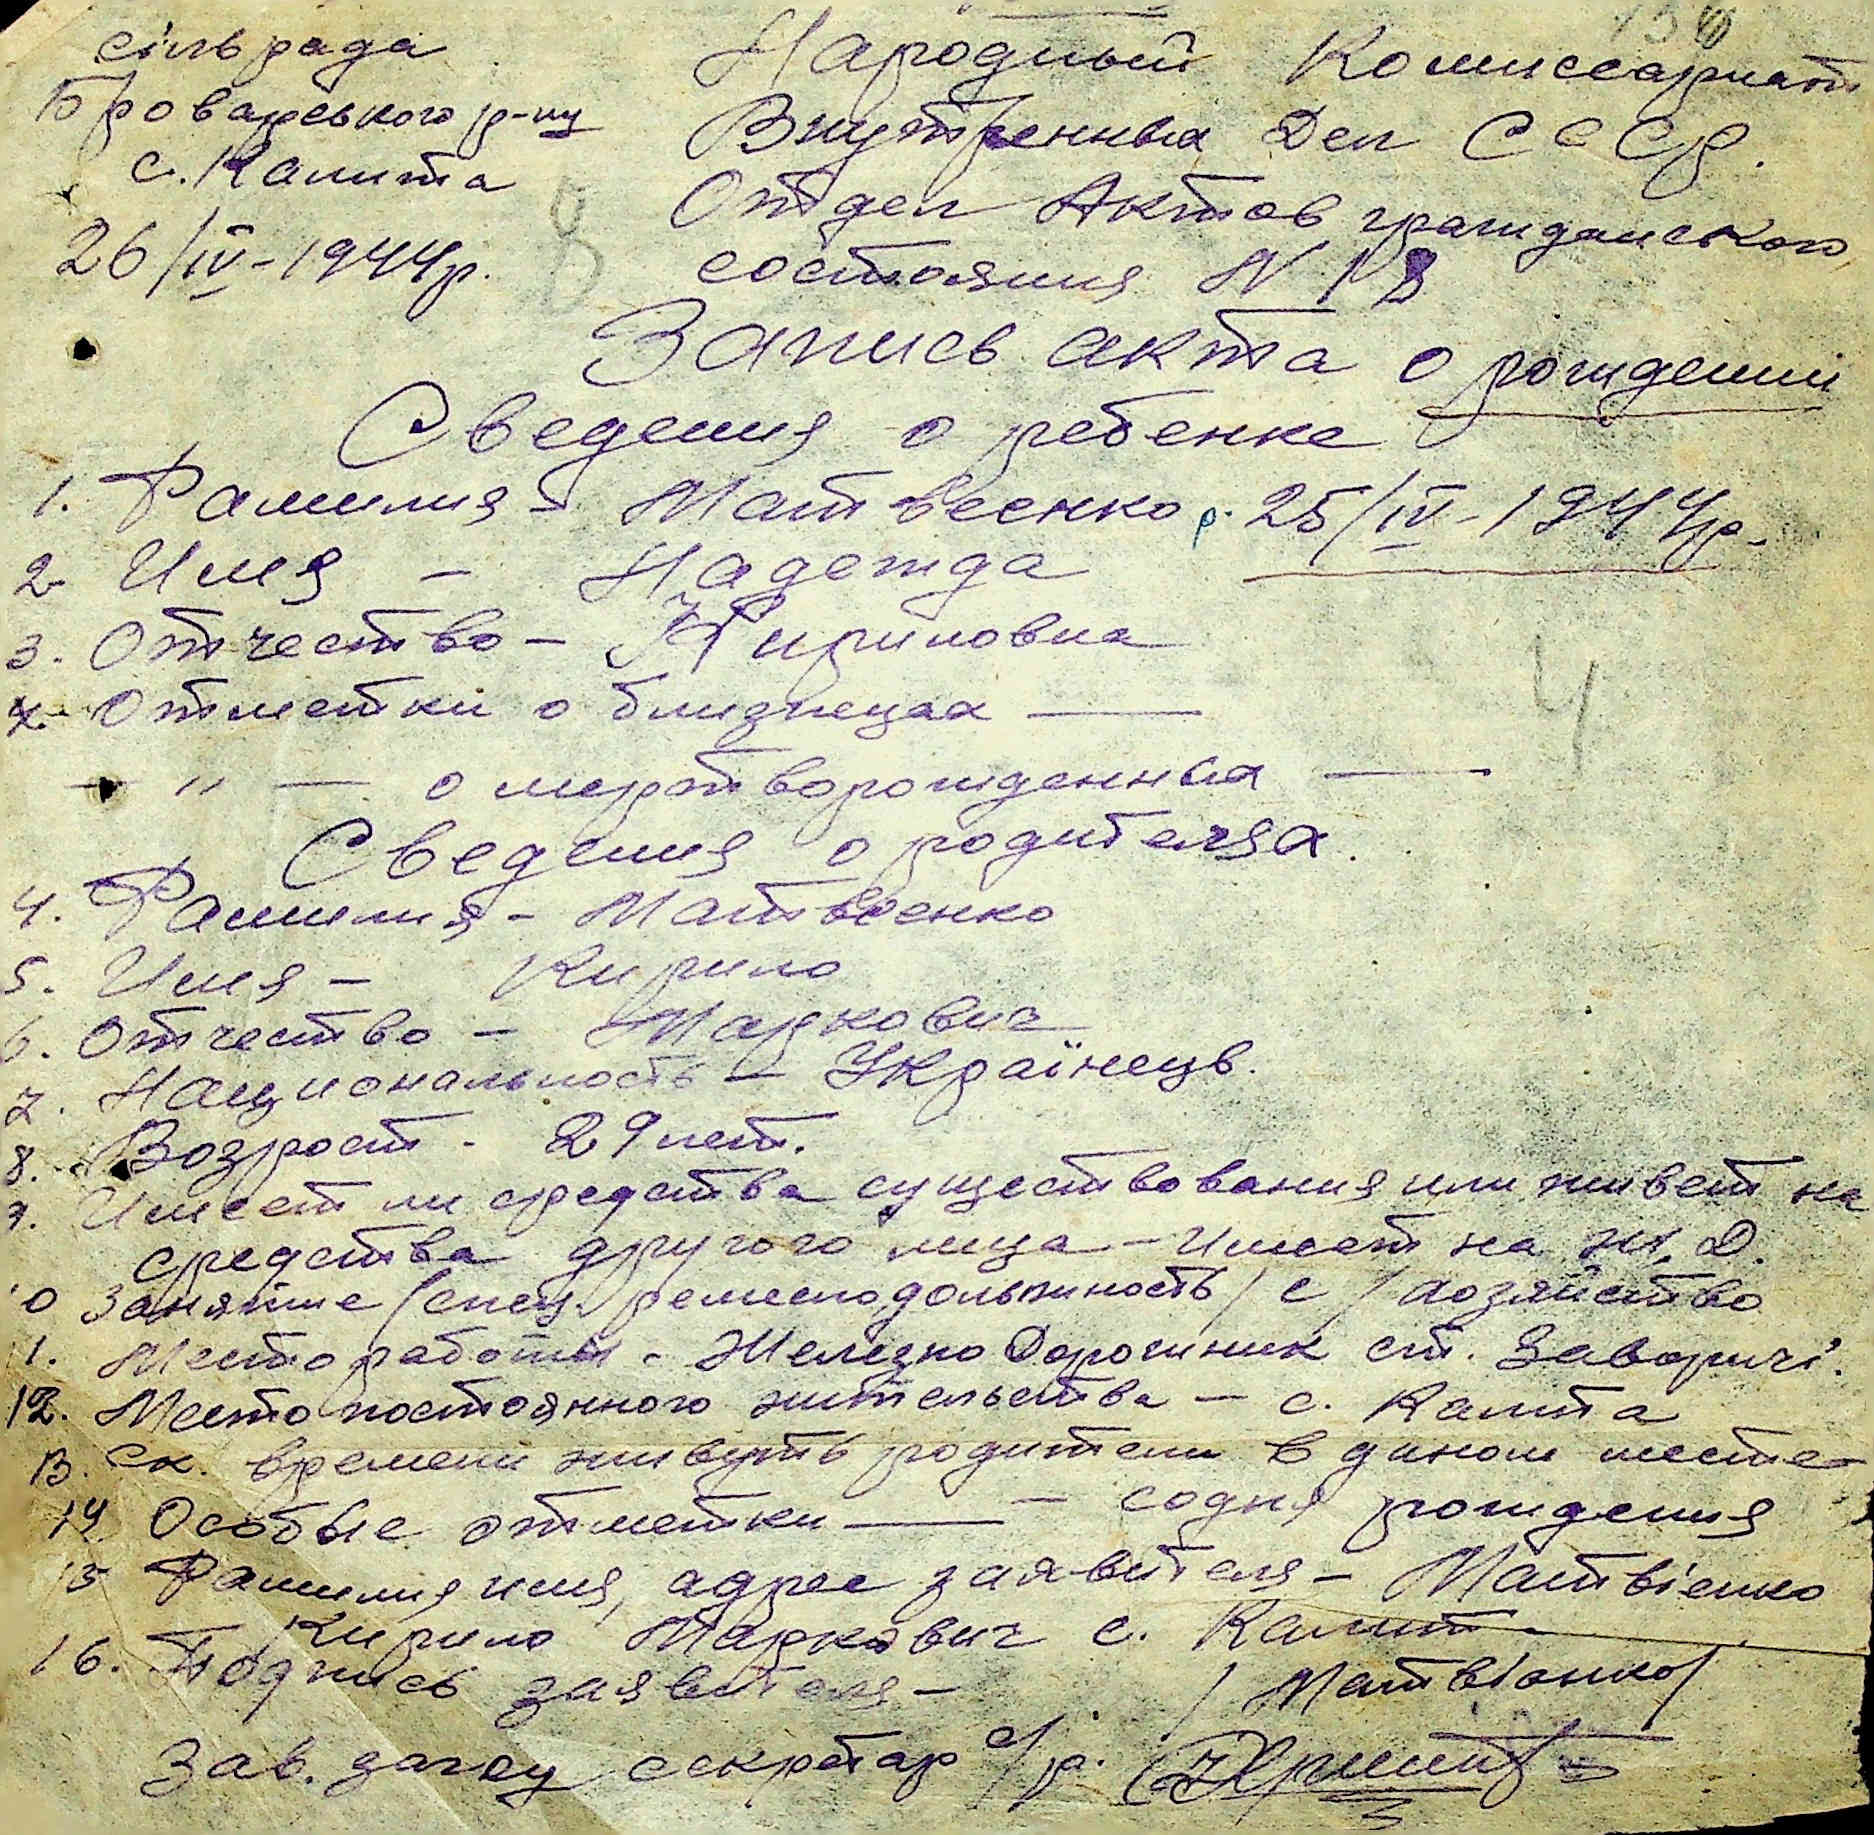 сільрада
Броварського р-ну
с. Калита
26/IV-1944р.
Народный Комиссариат
Внутренных Дел СССР.
Отдел Актов гражданского
состояния N 13
Запись акта о рождении
Сведения о ребенке
1. Фамилия - Матвеенко р. 25/IV-1944р.
2 Имя - Надежда
3. Отчество - Кириловна
4. Отметки о близнецах —
— " — о мертворожденных —
Сведения о родителях.
4. Фамилия - Матвеенко
5. Имя - Кирило
6. Отчество - Маркович
7. Национальность - Українецъ.
8. Возрост - 29 лет.
9. Имеет ли средства существования или живет на
средства другого лица - имеет на Ж.Д.
10 Занятие (спец. ремеслодолжность / с/хозяйство
11. Место работы - Железно Дорожник ст. Заворичі.
12. Место постоянного жительства - с. Калита
13. Ск. времени живуть родители в даном месте -
14. Особые отметки — - содня рождения
15 Фамилия имя, адрес заявителя - Матвієнко
Кирило Маркович с. Калит
16. Подпись заявителя - /Матвіэнко/
Зав. загсу секретар с/р.